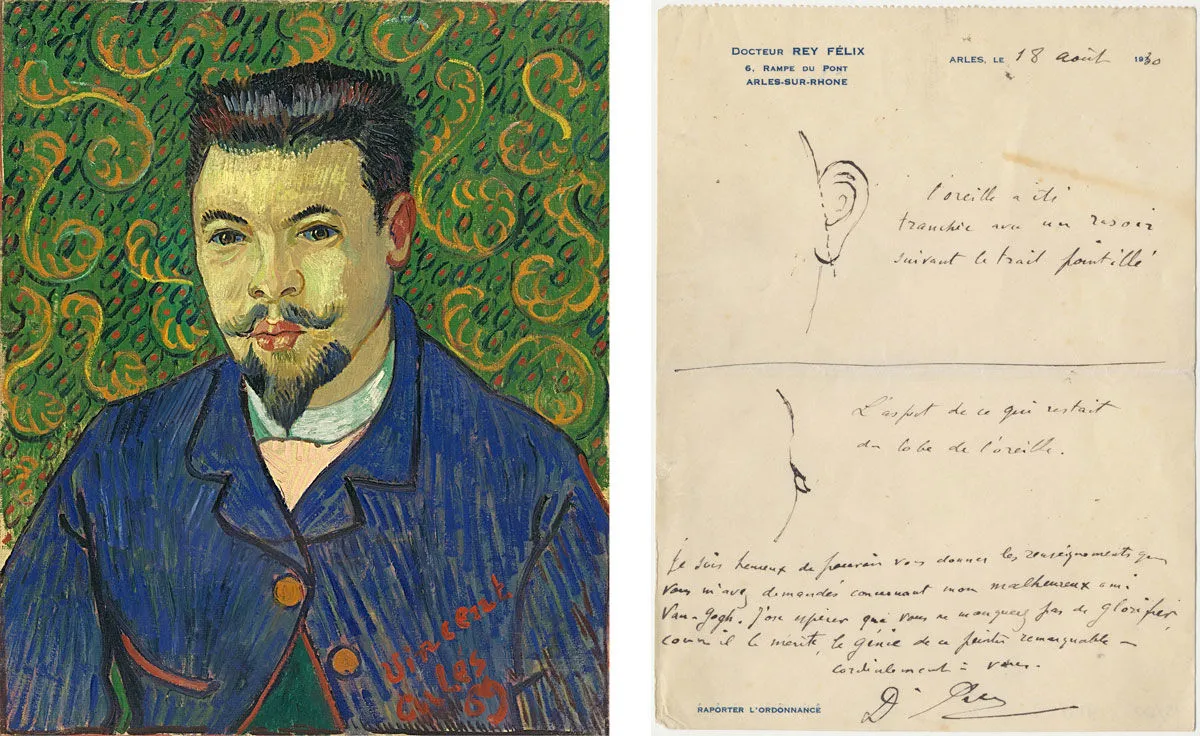 Vincent
Arles 89
DOCTEUR REY FÉLIX
6, RAMPE DU PONT
ARLES-SUR-RHONE
ARLES, LE 18 août 1930
L'oreille a été
tranchée avec un rasoir
suivant le trait pointillé
L'aspect de ce qui restait
du lobe de l'oreille.
Je suis heureux de pouvoir vous donner les renseignements que
vous m'avez demandés concernant mon malheureux ami
Van-Gogh. J'ose espérer que vous ne manquerez pas de glorifier
comme il le mérite, le génie de ce peintre remarquable –
cordialement à vous.
Dr Rey
RAPORTER L'ORDONNANCE